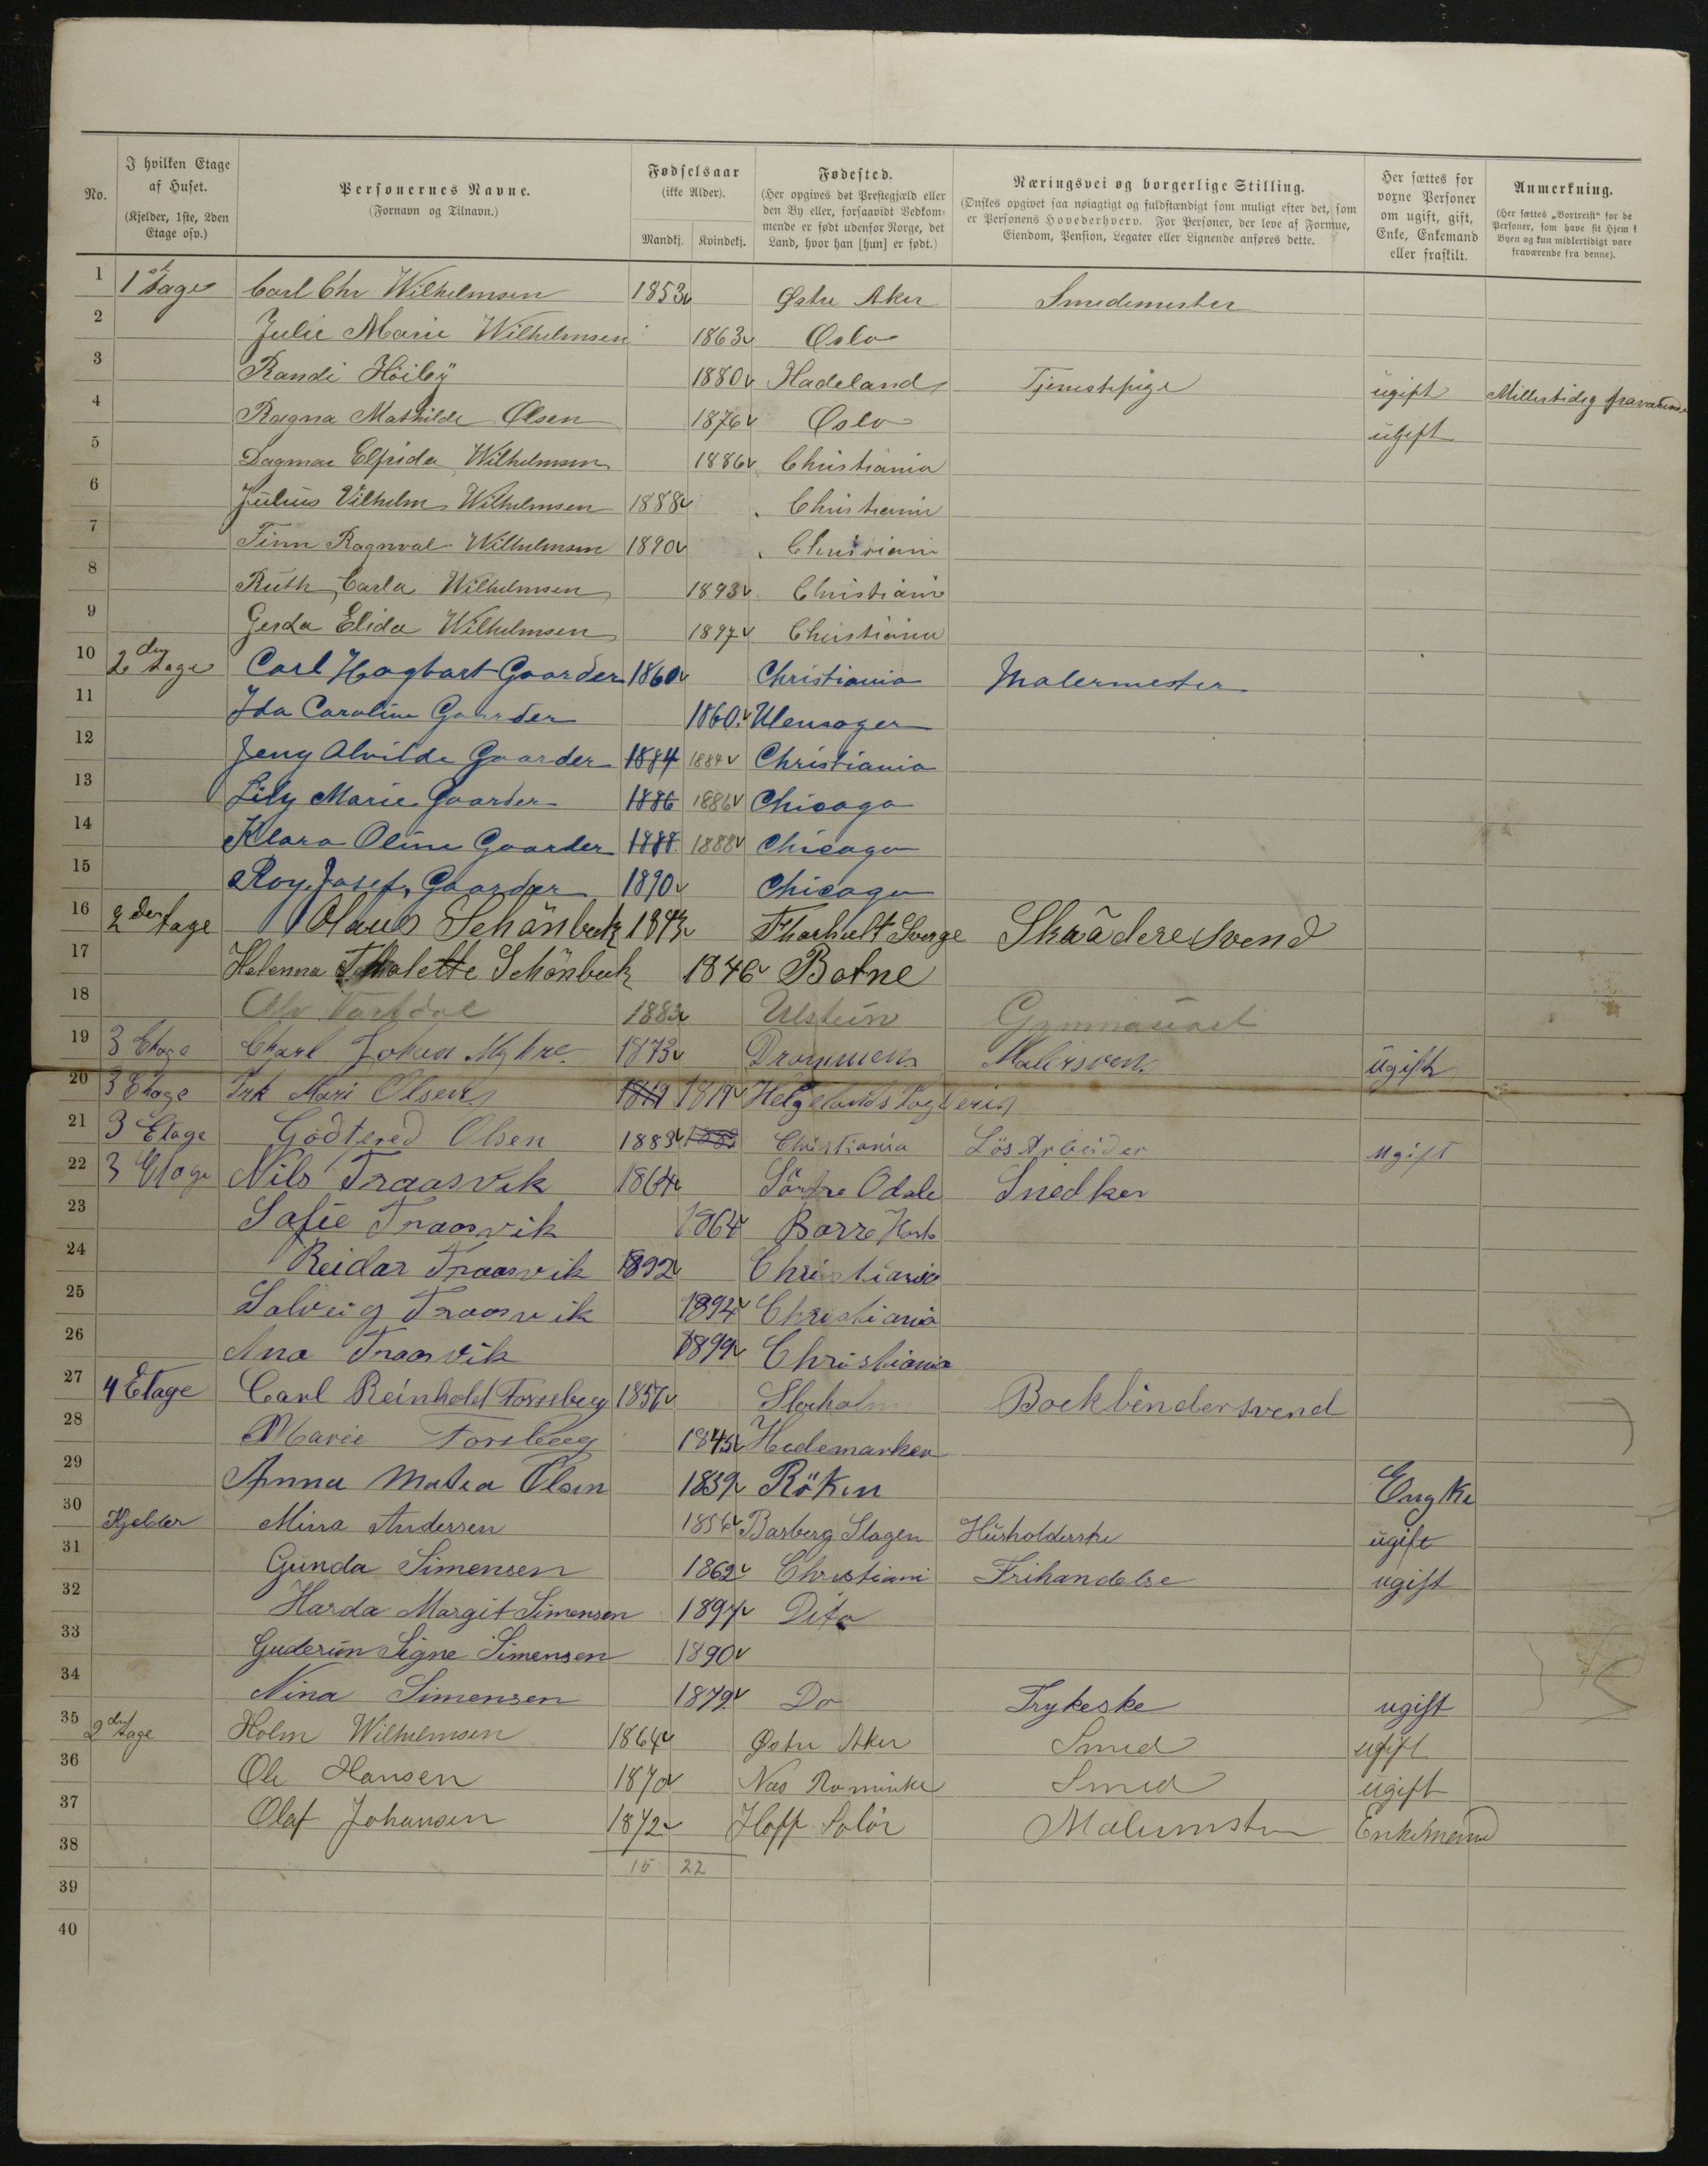 No. | I hvilken Etage af Huset. (Kjelder, 1ste, 2den Etage osv.) | Personernes Navne. (Fornavn og Tilnavn.) | Fødselsaar (ikke Alder). Mandkj. Kvindekj. | Fødested. (Her opgives det Prestegjæld eller den By eller, forsaavidt Vedkommende er født udenfor Norge, det Land, hvor han [hun] er født.) | Næringsvei og borgerlige Stilling. (Ønskes opgivet saa nøiagtigt og fuldstændigt som muligt efter det, som er Personens Hovederhverv. For Personer, der leve af Formue, Eiendom, Pension, Legater eller Lignende anføres dette. | Her sættes for voxne Personer om ugift, gift, Enke, Enkemand eller fraskilt. | Anmerkning. (Her sættes „Bortreist" for de Personer, som have sit Hjem i Byen og kun midlertidigt vare fraværende fra denne).
1 1st tage Carl Chr Wilhelmsen 1853 Østre Aker Smedemester
2 Julie Marie Wilhelmsen 1863 Oslo
3 Randi Höiby 1880 Hadeland Tjenestepige ugift Millertidig fraværende
4 Ragna Mathilde Olsen 1876 Oslo ugift
5 Dagmar Elfrida Wilhelmsen 1886 Christiania
6 Julius Vilhelm Wilhelmsen 1888 Christiania
7 Finn Ragnval Wilhelmsen 1890
8 Ruth Carla Wilhelmsen 1893 Christiania
9 Gerda Elida Wilhelmsen 1897 Christiania
10 2den tage Carl Hagbart Gaarder 1860 Christiania Malermester
11 Ida Caroline Gaarder 1860. Ulensager
12 Jeny Alvilde Gaarder 1884 1884 Christiania
13 Lily Marie Gaarder 1886 1886 Chicago
14 Klara Oline Gaarder 1888 1888 Chicago
15 Roy Josef Gaarder 1890 Chicago
16 2den tage Olaus Schönbeck 1843 Sverge Skräderesvend
17 Helenna Schönbeck 1846 Botne
18 1883 Ulstein Gymnasiast
19 3 Etage Charl Johan Myhre 1873 Drammen Malersven ugift
20 3 Etage Mari Olsen 1819 1819 Helgelands
21 3 Etage Godtfred Olsen 1883 1883 Christiania Lös Arbeider ugift
22 3 Etage Nils Traasvik 1864 Söndre Odale Snedker
23 Sofie Traasvik 1864 Borre
24 Reidar Traasvik 1892 Christiania
25 Solveig Traasvik 1894 Christiania
26 Ana Traasvik 1899 Christiania
27 4 Etage Carl Reinhold Forssberg 1857 Stocholm Bockbindersvend
28 Marie Forsberg 1845 Hedemarken
29 Anna Matea Olsen 1839 Röken Engke
30 Kjelder Mina Andersen 1856 Barberg Slagen Husholderske ugift
31 Gunda Simensen 1862 Christiani Frihandelse ugift
32 Harda Margit Simensen 1897 Dito
33 Guderun Signe Simensen 1890
34 Nina Simensen 1879 Do Trykeske ugift
35 2den tage Holm Wilhelmsen 1864 Østre Aker Smed ugift
36 Ole Hansen 1870 Nas Rominke Smed ugift
37 Olaf Johansen 1872 Hoff Solör Malermster Enkemand
38 15 22
39
40